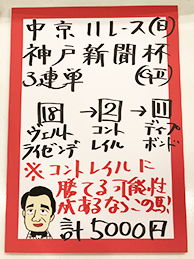 中京11レース(日)
神戸新聞杯
3連単 (GII)
18→2→11
ヴェルト コント ディープ
ライゼンデ レイル ボンド
※コントレイルに
勝てる可能性
があるならこの馬
計5000円